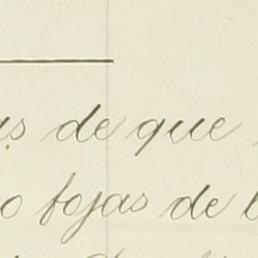 as de que
o fojas de l